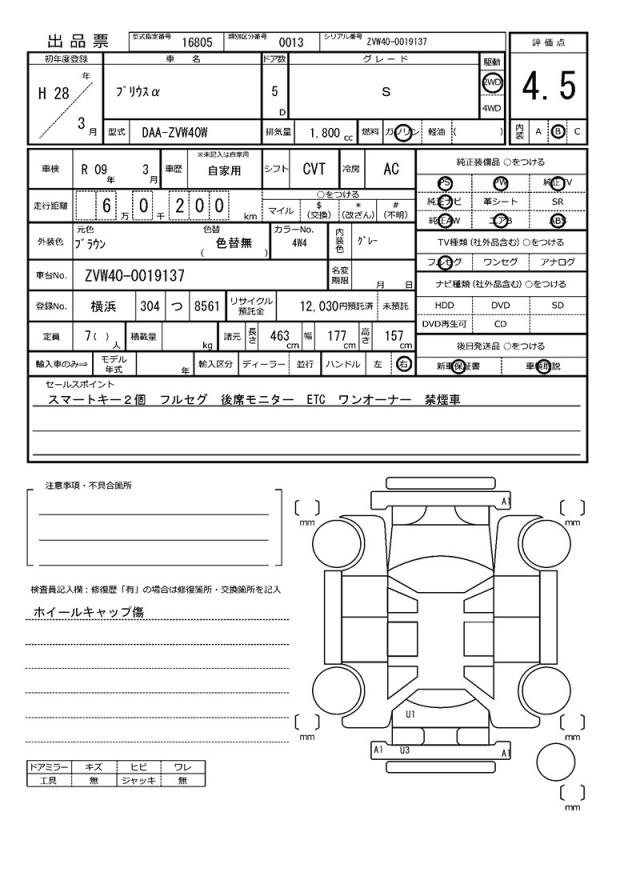 出品票 型式指定番号 16805 類別区分番号 0013 シリアル番号 ZVW40-0019137
初年度登録 車 名 ドア数 グレード 駆動 評価点
H 28 年 3 月 プリウスα 5 D S 2WD 4WD 4.5
型式 DAA-ZVW40W 排気量 1.800 cc 燃料 ガソリン 軽油 ( ) 内装 A B C
車検 R 09 年 3 月 車歴 ※未記入は自家用 自家用 シフト CVT 冷房 AC
走行距離 6 万 0 千 2 0 0 km ○をつける
マイル $ (交換) * (改ざん) # (不明)
外装色 元色 ブラウン 色替 ( 色替無 ) カラーNo. 4W4 内装色 グレー
車台No. ZVW40-0019137 名変期限 月 日
登録No. 横浜 304 つ 8561 リサイクル預託金 12,030円預託済 未預託
定員 7( ) 人 積載量 kg 諸元 長さ 463 cm 幅 177 cm 高さ 157 cm
輸入車のみ⇒ モデル年式 年 輸入区分 ディーラー 並行 ハンドル 左 右
純正装備品 ○をつける
PS PW 純正TV
純正ナビ 革シート SR
純正AW エアB ABS
TV種類 (社外品含む) ○をつける
フルセグ ワンセグ アナログ
ナビ種類 (社外品含む) ○をつける
HDD DVD SD
DVD再生可 CD
後日発送品 ○をつける
新車保証書 車輌取説
セールスポイント
スマートキー2個 フルセグ 後席モニター ETC ワンオーナー 禁煙車
注意事項・不具合箇所
検査員記入欄：修復歴「有」の場合は修復箇所・交換箇所を記入
ホイールキャップ傷
ドアミラー キズ ヒビ ワレ
工具 無 ジャッキ 無
A1
〔 〕 mm 〔 〕 mm
〔 〕 mm 〔 〕 mm
U1
A1 U3 A1
〔 〕 mm